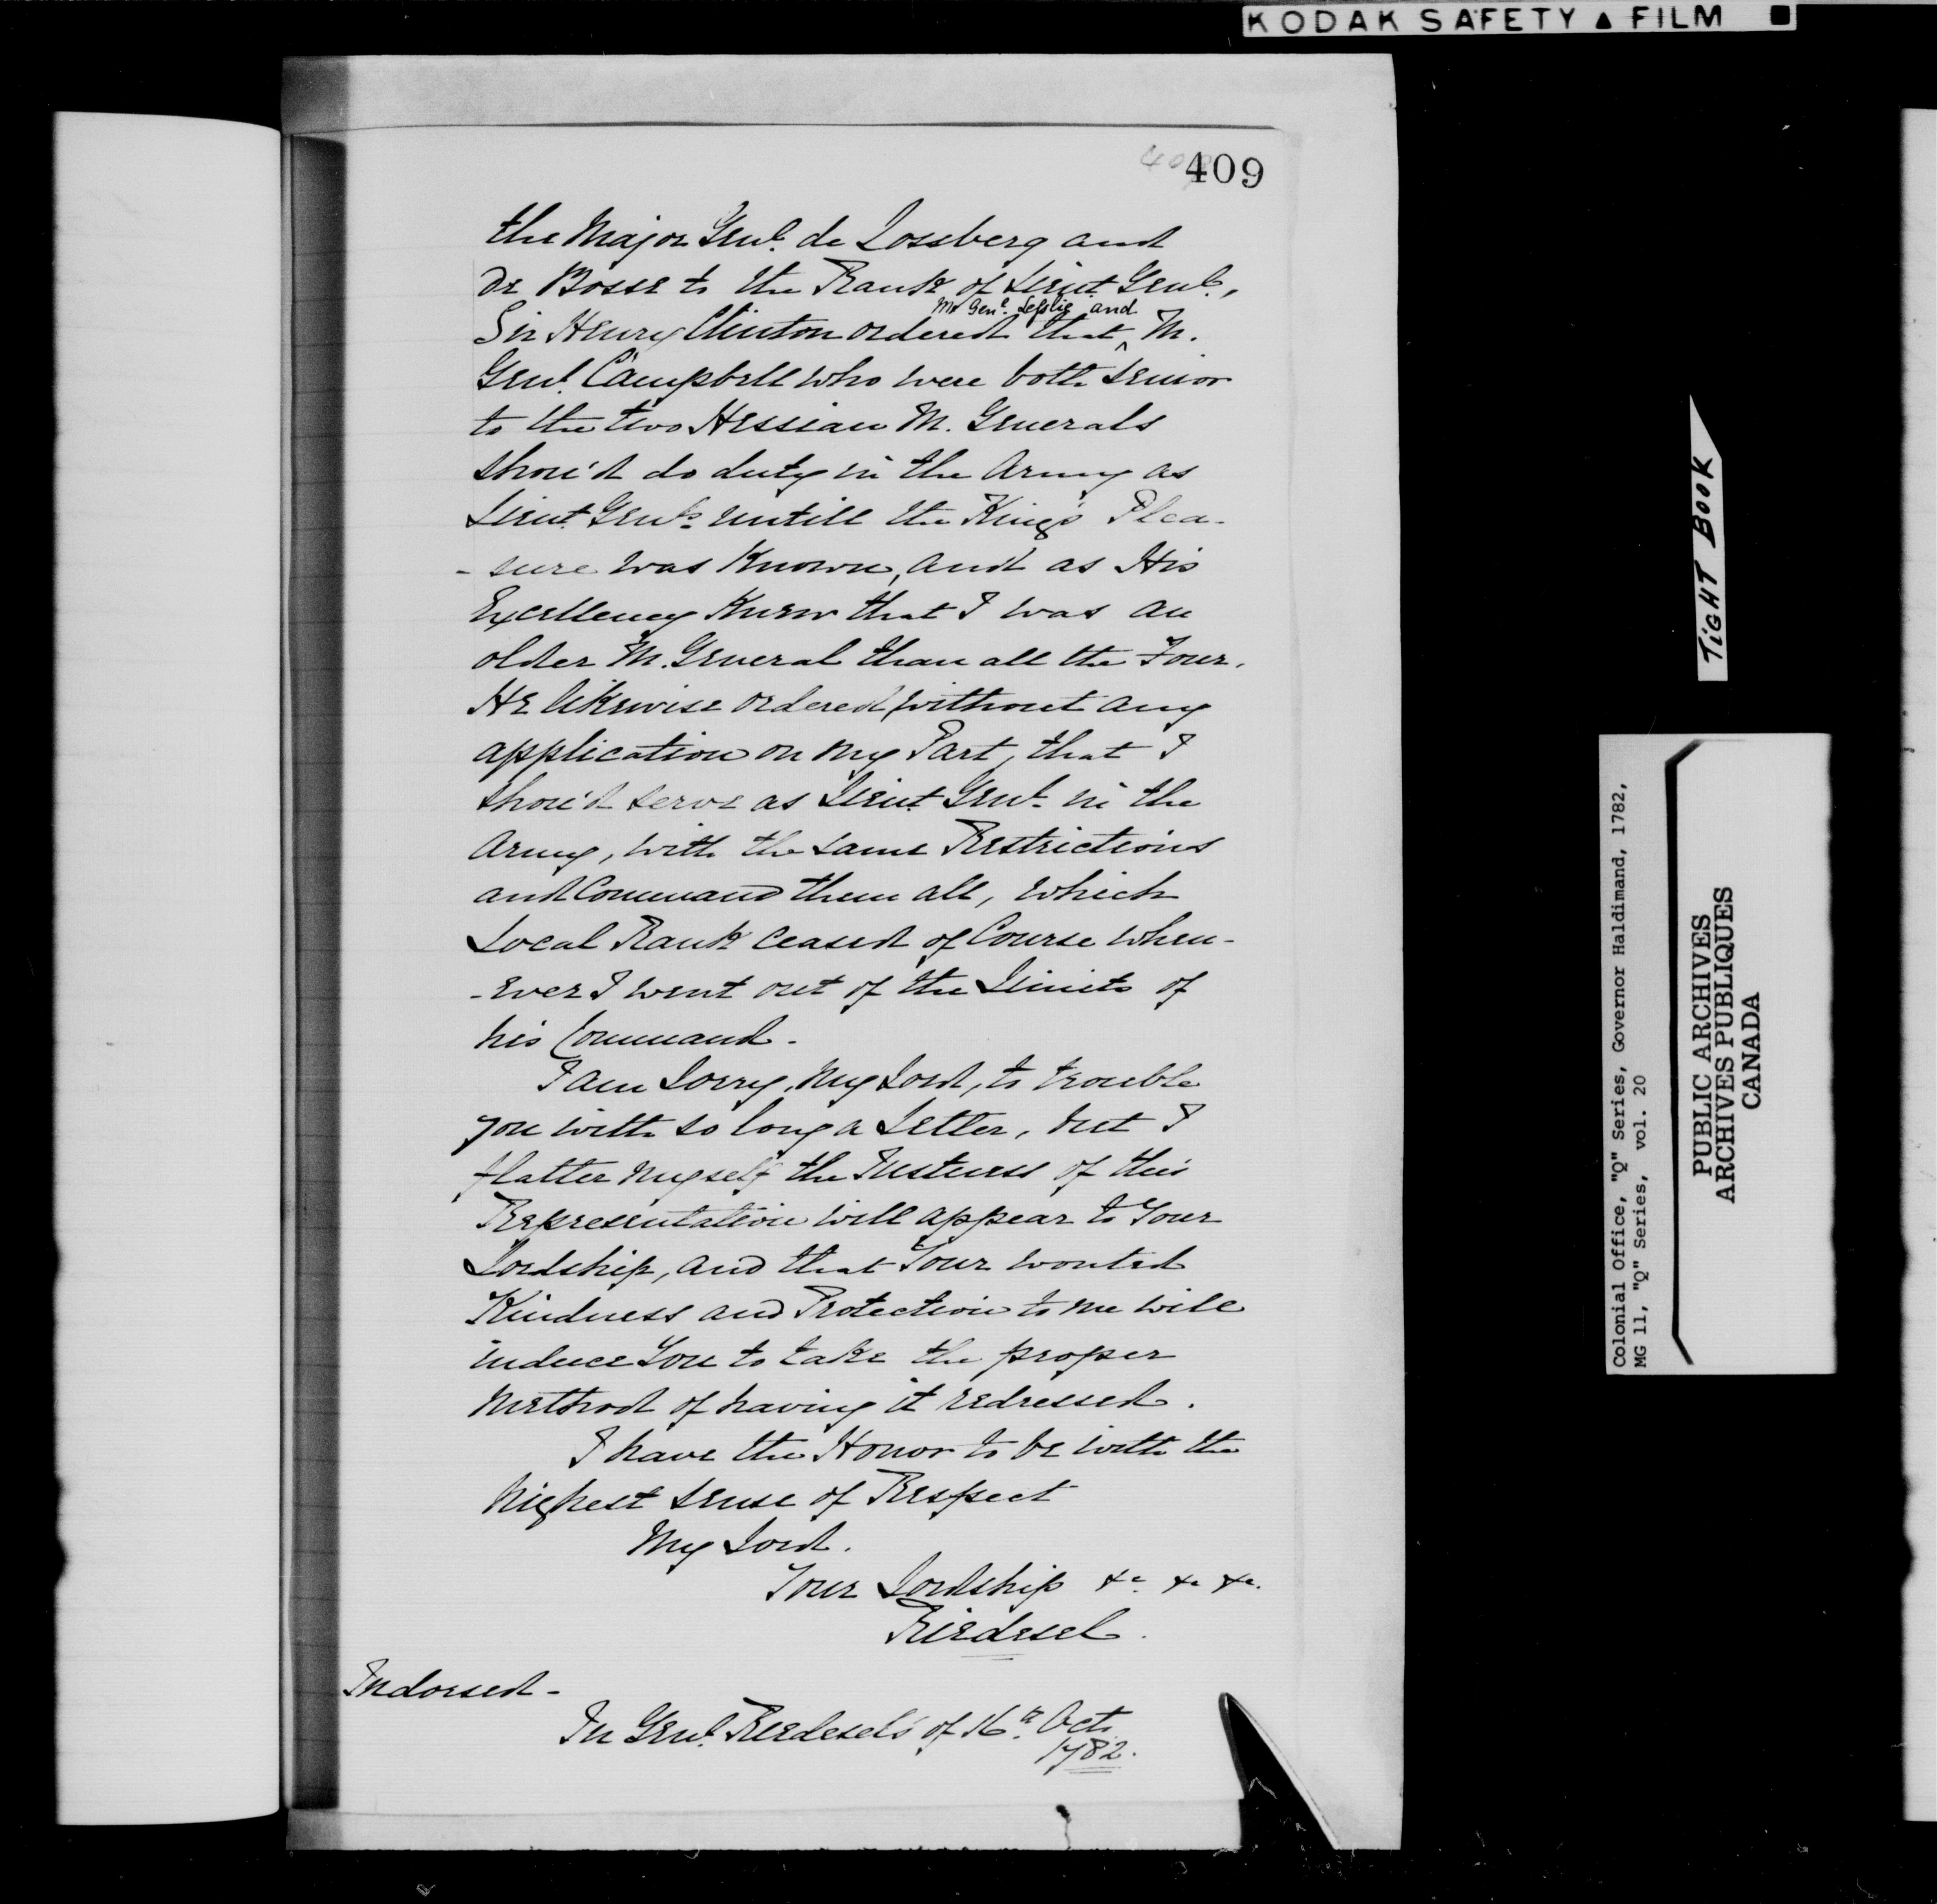 KODAK SAFETY ▲ FILM
409
the Major Genl. de Lossberg and
de Bosse to the Rank of Lieut Genl.,
Mr Genl. Leslie and
Sir Henry Clinton ordered that ^ M.
Genl. Campbell who were both senior
to the two Hessian M. Generals
shou'd do duty in the Army as
Lieut Genls. untill the King's Plea-
-sure was Known, and as His
Excellency Knew that I was an
older M. General than all the Four.
He likewise ordered, without any
application on my Part, that I
shou'd serve as Lieut Genl. in the
Army, with the same Restrictions
and Command them all, which
Local Rank ceased of Course when-
-ever I went out of the Limits of
his Command.
I am Sorry, My Lord, to trouble
you with so long a Letter, but I
flatter myself the Justness of this
Representation will appear to Your
Lordship, and that Your wonted
Kindness and Protection to me will
induce You to take the proper
method of having it redressed.
I have the Honor to be with the
highest sense of Respect
My Lord.
Your Lordship &c. &c &c.
Riedesel.
Indorsed -
In Genl. Riedesel's of 16th. Oct.
1782.
TIGHT BOOK
Colonial Office, "Q" Series, Governor Haldimand, 1782,
MG 11, "Q" Series, vol. 20
PUBLIC ARCHIVES
ARCHIVES PUBLIQUES
CANADA